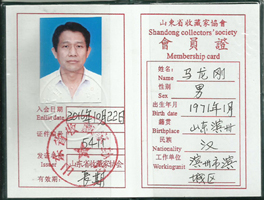 山東省收藏家協會
Shandong collectors'society
會員證
Membership card
姓名 马龙刚
Name
性别 男
Sex
出生年月 1971年1月
Birth date
籍贯 山东滨州
Birthplace
民族 汉
Nationality
工作单位 滨州市滨
Workingunit 城区
入会日期 2016年10月22日
Enlist date
证件编号
发证单位 山东省收藏家协会
Issuer
有效期: